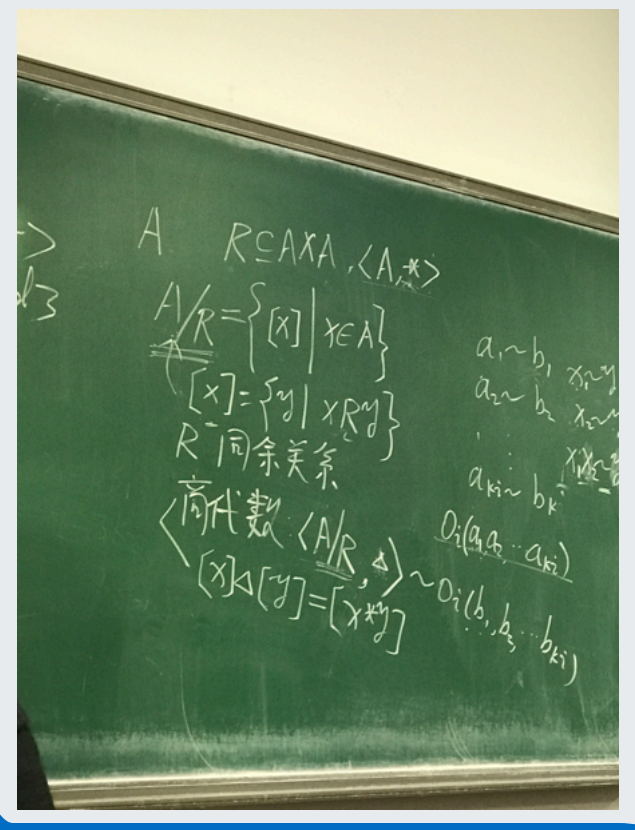 A R⊆A×A, <A,*>
A/R={[x]|x∈A}
[x]={y|xRy}
R 同余关系
商代数:<A/R,△>
[x]△[y]=[x*y]
a₁~b₁ x₁~y
a₂~b₂ x₂~y
⋮ ⋮ x₁x₂~y
aₖᵢ~bₖᵢ
Oᵢ(a₁a₂…aₖᵢ)
~Oᵢ(b₁,b₂…bₖᵢ)